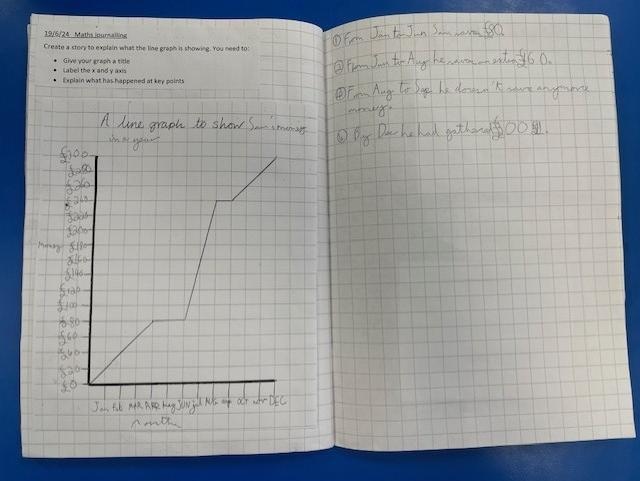 19/6/24 Maths journalling
Create a story to explain what the line graph is showing. You need to:
• Give your graph a title
• Label the x and y axis
• Explain what has happened at key points
A line graph to show Sam's money
in a year
£300
£280
£260
£240
£220
£200
£180
£160
£140
£120
£100
£80
£60
£40
£20
£0
Money
Jan Feb MAR APR May JUN Jul AUG sep OCT nov DEC
months
① From Jan to Jun Sam saves £80.
From Jun to Aug he saves an extra £160.
From Aug to Sep he doesn't save anymore
money.
By Dec he had gathered